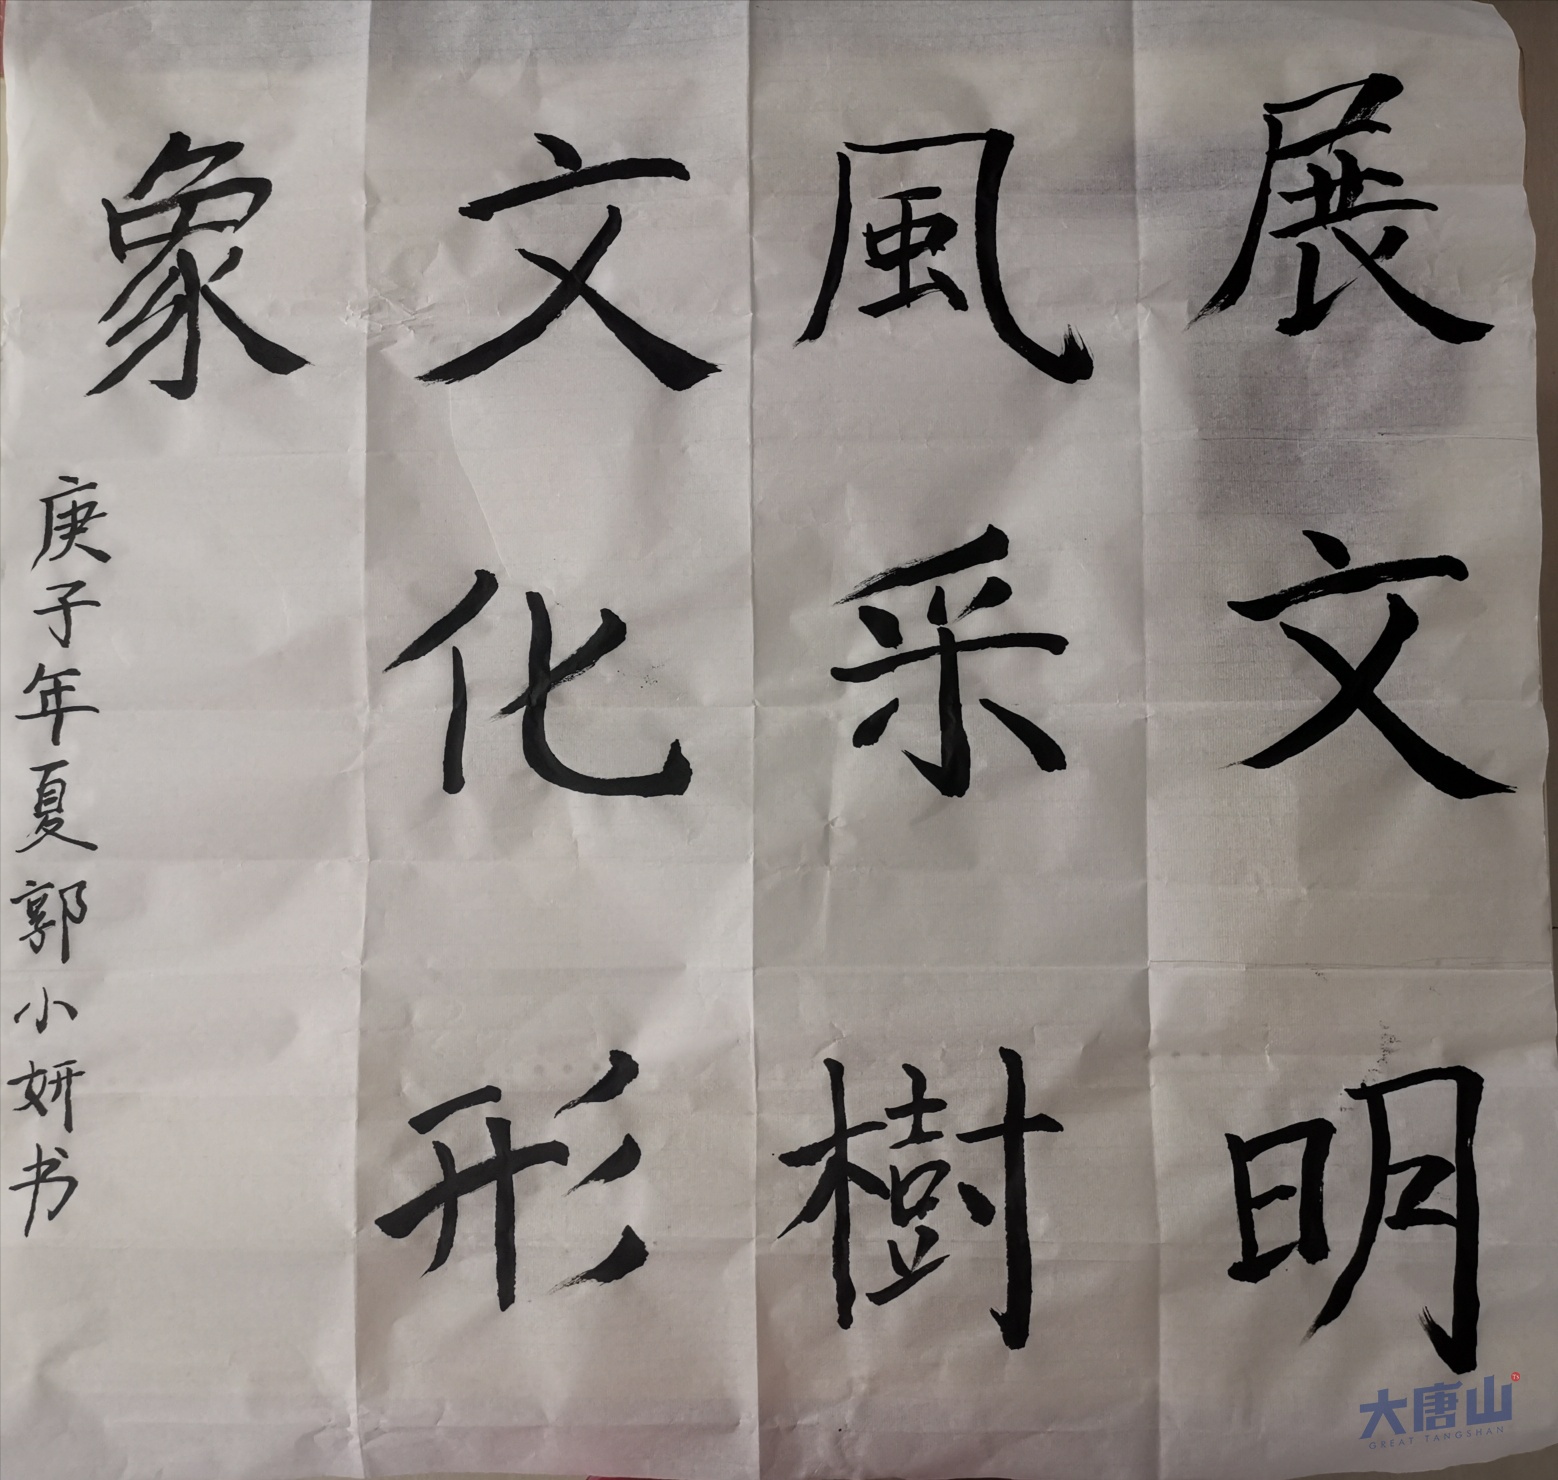 展文明
風采樹
文化形
象
庚子年夏郭小妍书
大唐山
GREAT TANGSHAN